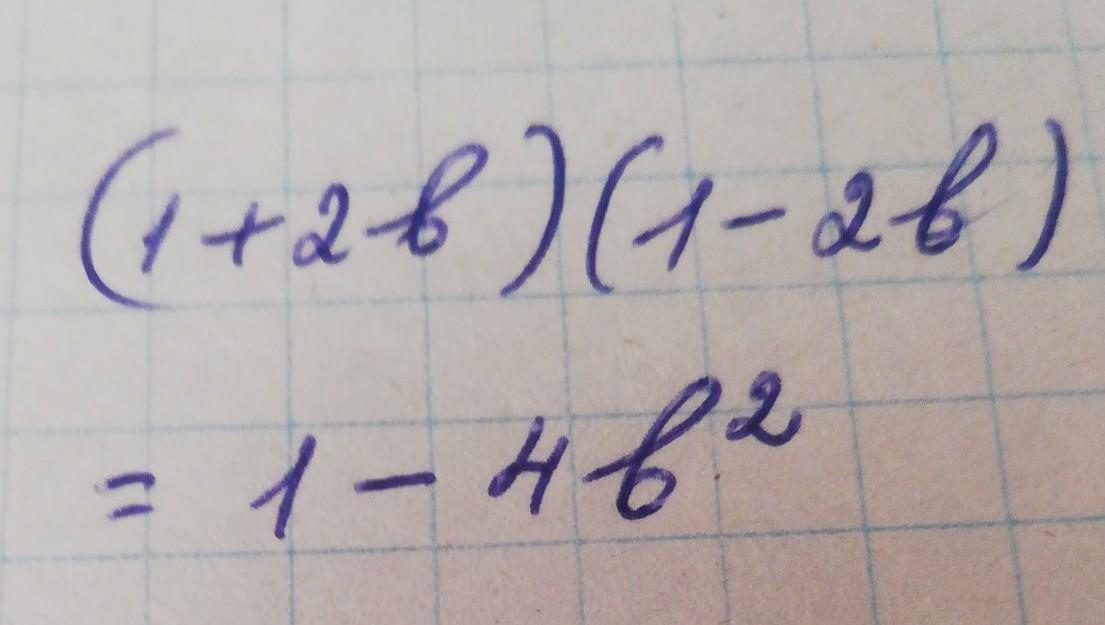 (1+2b)(1-2b)
= 1 - 4b²